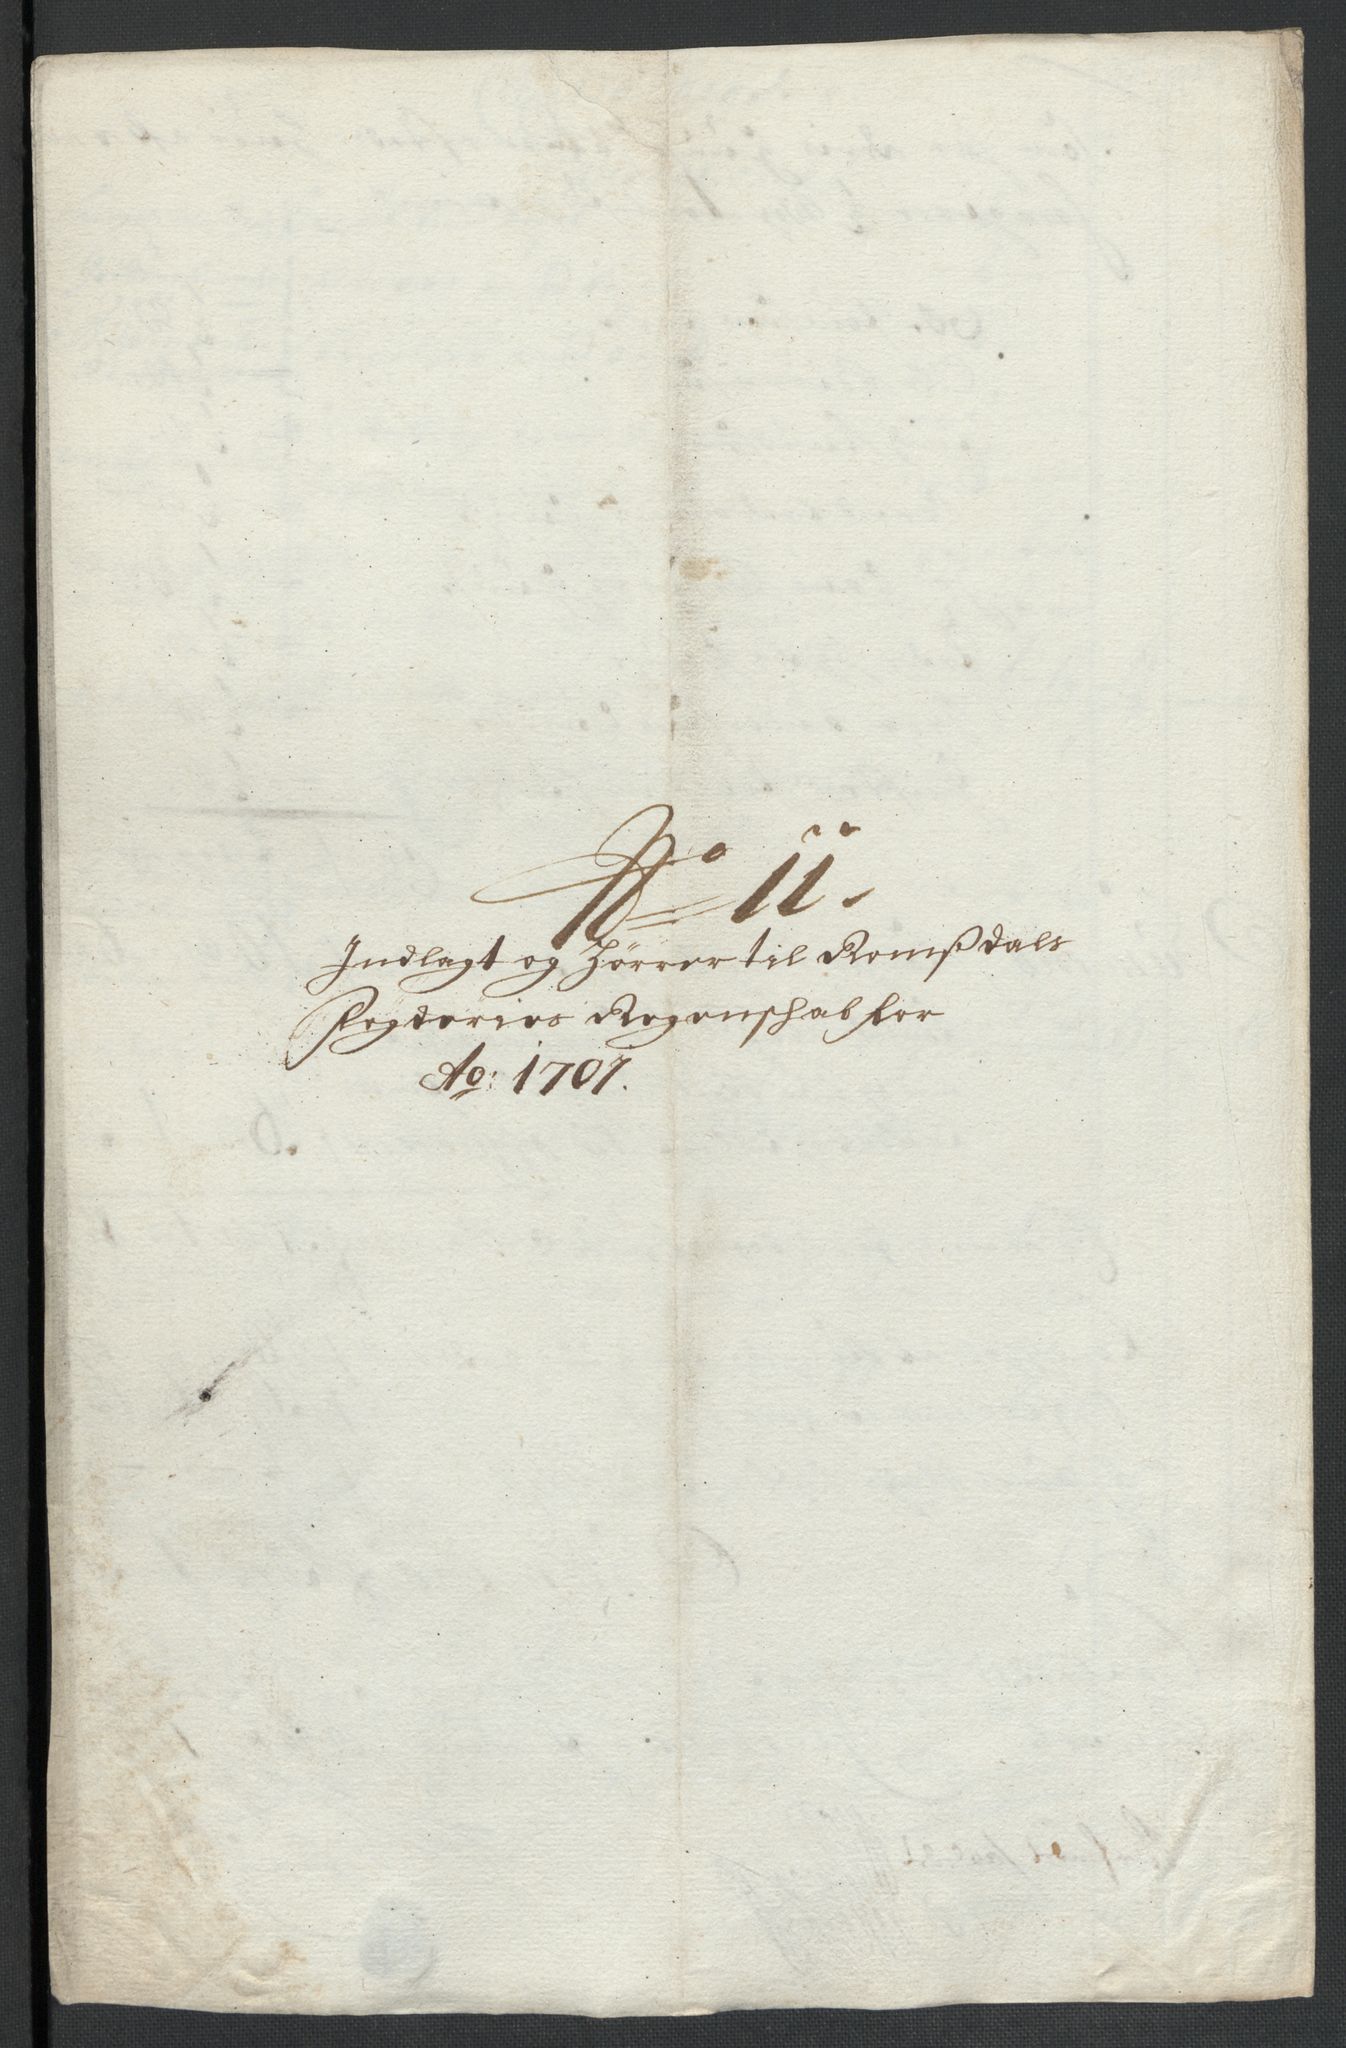 No. 11.
Indlagt og hörrer til Romßdals
Fogderies Regenschab for
Ao: 1707.